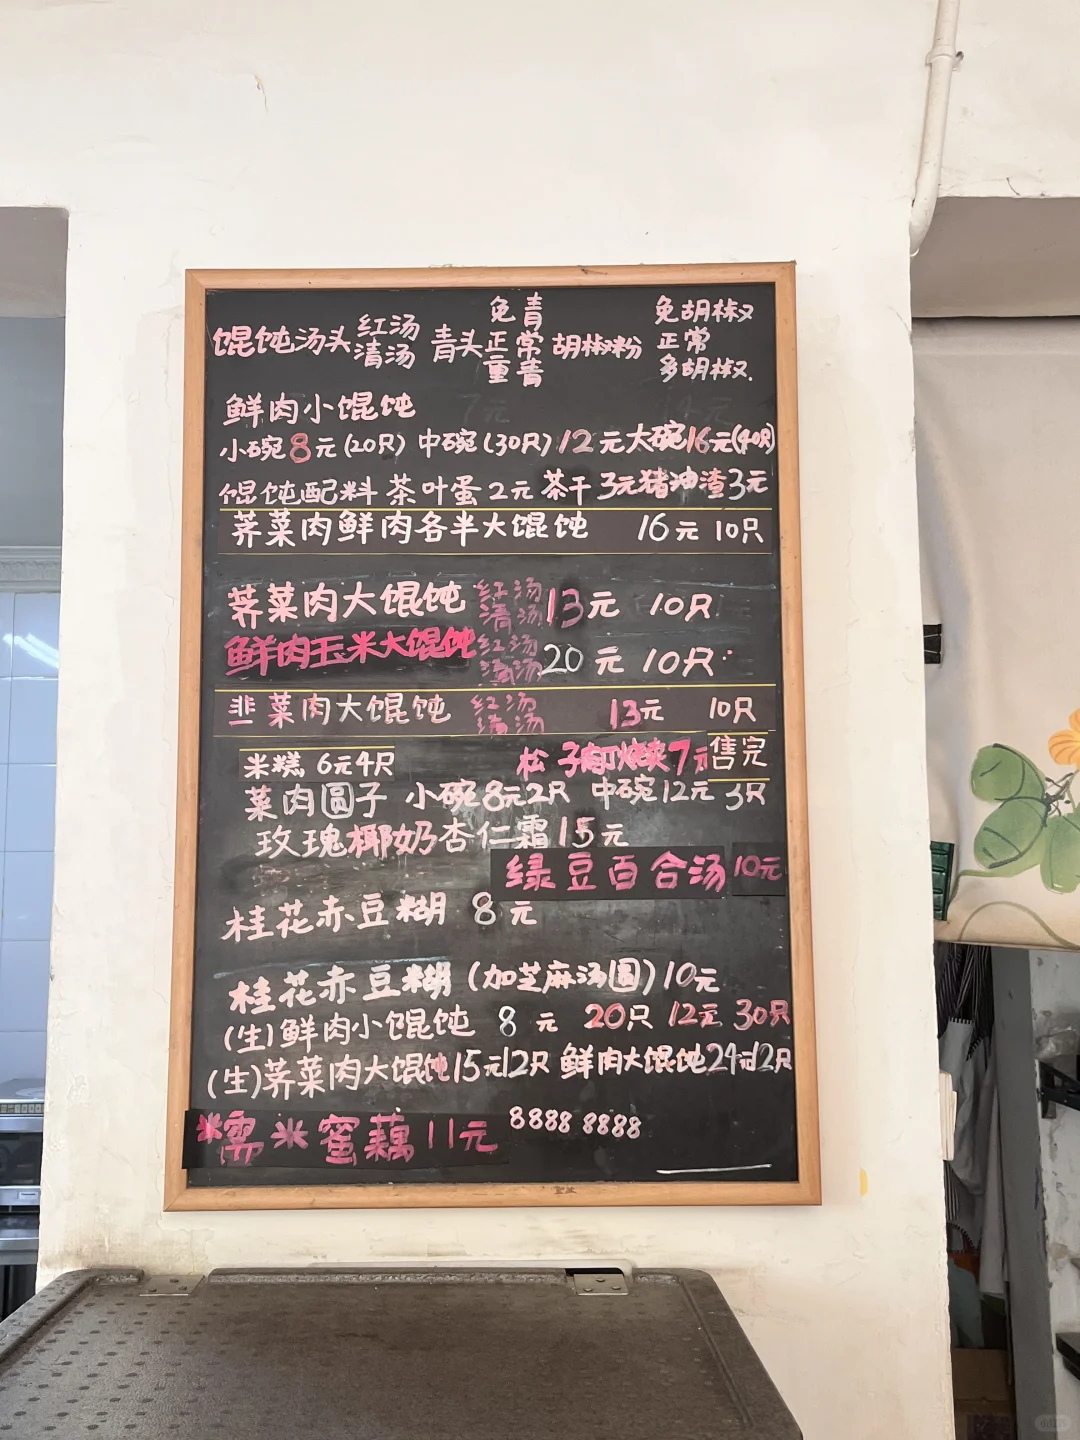 馄饨汤头 红汤 清汤 青头 免青 正常 重青 胡椒粉 免胡椒 正常 多胡椒.
鲜肉小馄饨
小碗8元(20只) 中碗(30只)12元大碗16元(40只)
馄饨配料 茶叶蛋2元 茶干3元猪油渣3元
荠菜肉鲜肉各半大馄饨 16元 10只
荠菜肉大馄饨 红汤 清汤 13元 10只
鲜肉玉米大馄饨 红汤 清汤 20元 10只
韭菜肉大馄饨 红汤 清汤 13元 10只
米糕 6元4只 松子肉丁烧卖7元 售完
菜肉圆子 小碗8元2只 中碗12元 3只
玫瑰椰奶杏仁霜15元
绿豆百合汤10元
桂花赤豆糊 8元
桂花赤豆糊(加芝麻汤圆)10元
(生)鲜肉小馄饨 8元 20只 12元 30只
(生)荠菜肉大馄饨15元12只 鲜肉大馄饨24元12只
糯米蜜藕11元 8888 8888